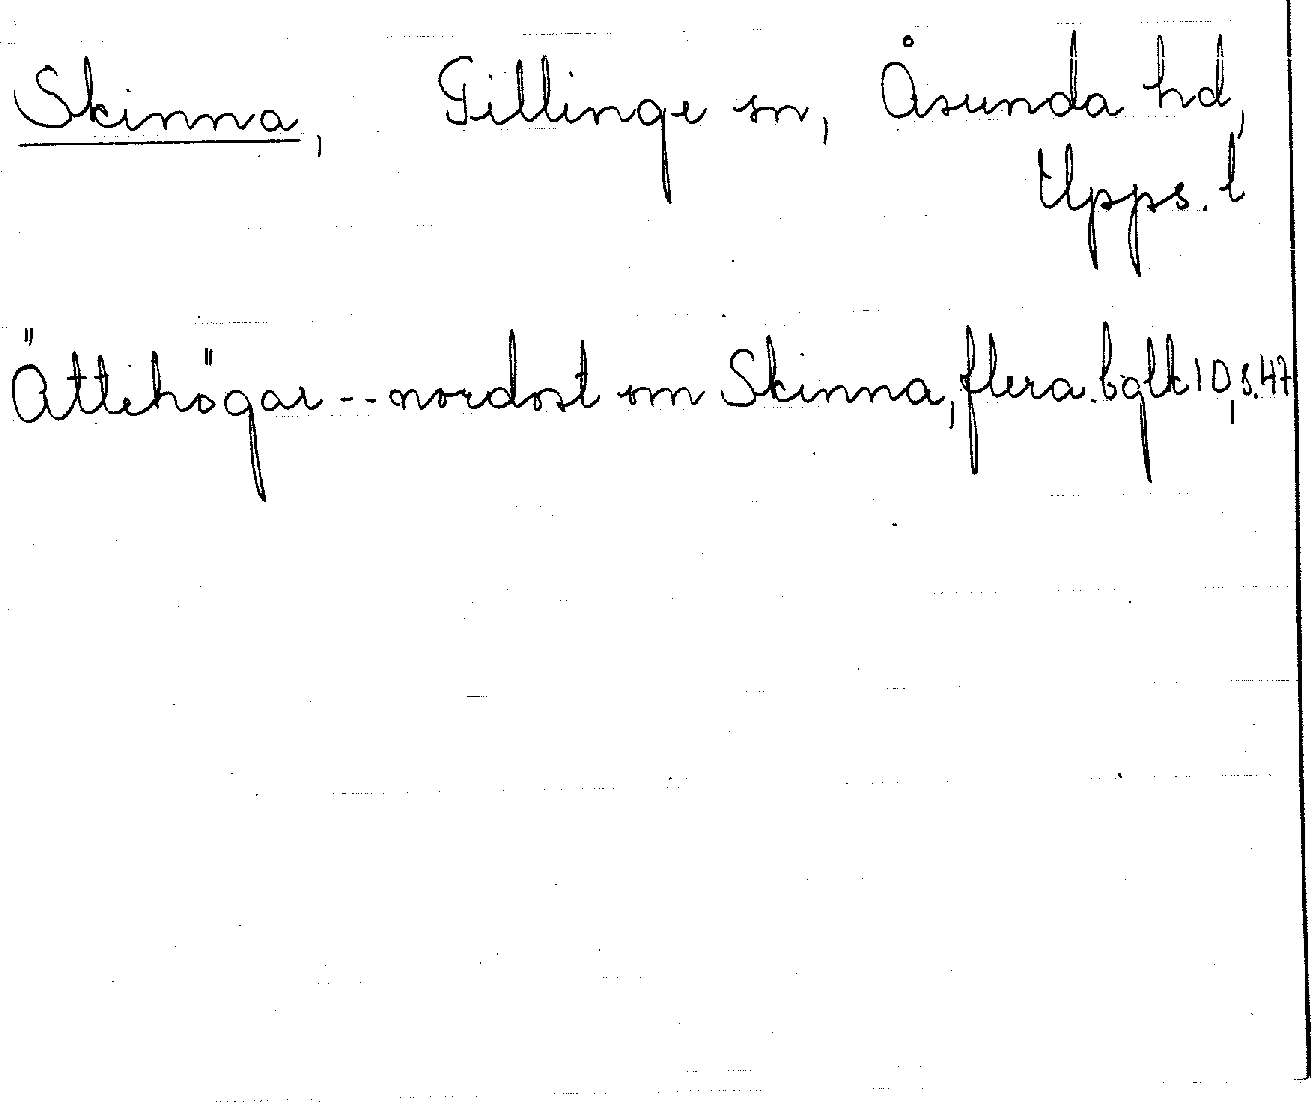 Skinna, Gillinge sn, Åsunda hd,
Upps. l
Ättehögar -- nordost om Skinna, flera. bglk 10, s. 47